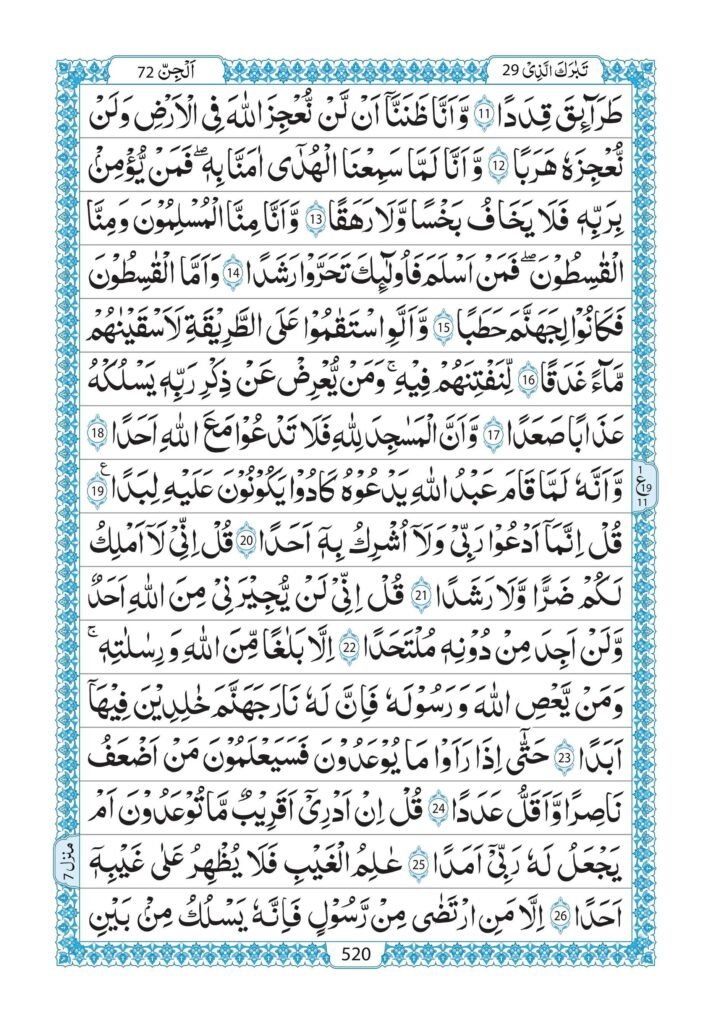 تَبٰرَكَ الَّذِىْ 29
اَلْجِنّ 72
طَرَآئِقَ قِدَدًا ۙ 11 وَّاَنَّا ظَنَنَّاۤ اَنْ لَّنْ نُّعْجِزَ اللّٰهَ فِى الْاَرْضِ وَلَنْ
نُّعْجِزَهٗ هَرَبًا ۙ 12 وَّاَنَّا لَمَّا سَمِعْنَا الْهُدٰٓى اٰمَنَّا بِهٖ ؕ فَمَنْ يُّؤْمِنْۢ
بِرَبِّهٖ فَلَا يَخَافُ بَخْسًا وَّلَا رَهَقًا ۙ 13 وَّاَنَّا مِنَّا الْمُسْلِمُوْنَ وَمِنَّا
الْقٰسِطُوْنَ ؕ فَمَنْ اَسْلَمَ فَاُولٰٓئِكَ تَحَرَّوْا رَشَدًا 14 وَاَمَّا الْقٰسِطُوْنَ
فَكَانُوْا لِجَهَنَّمَ حَطَبًا ۙ 15 وَّاَنْ لَّوِ اسْتَقَامُوْا عَلَى الطَّرِيْقَةِ لَاَسْقَيْنٰهُمْ
مَّآءً غَدَقًا ۙ 16 لِّنَفْتِنَهُمْ فِيْهِ ؕ وَمَنْ يُّعْرِضْ عَنْ ذِكْرِ رَبِّهٖ يَسْلُكْهُ
عَذَابًا صَعَدًا ۙ 17 وَّاَنَّ الْمَسٰجِدَ لِلّٰهِ فَلَا تَدْعُوْا مَعَ اللّٰهِ اَحَدًا ۙ 18
وَّاَنَّهٗ لَمَّا قَامَ عَبْدُ اللّٰهِ يَدْعُوْهُ كَادُوْا يَكُوْنُوْنَ عَلَيْهِ لِبَدًا ؕ 19
1
ع
19
11
قُلْ اِنَّمَاۤ اَدْعُوْا رَبِّىْ وَلَاۤ اُشْرِكُ بِهٖۤ اَحَدًا 20 قُلْ اِنِّىْ لَاۤ اَمْلِكُ
لَكُمْ ضَرًّا وَّلَا رَشَدًا 21 قُلْ اِنِّىْ لَنْ يُّجِيْرَنِىْ مِنَ اللّٰهِ اَحَدٌ
وَّلَنْ اَجِدَ مِنْ دُوْنِهٖ مُلْتَحَدًا ۙ 22 اِلَّا بَلٰغًا مِّنَ اللّٰهِ وَرِسٰلٰتِهٖ ؕ
وَمَنْ يَّعْصِ اللّٰهَ وَرَسُوْلَهٗ فَاِنَّ لَهٗ نَارَ جَهَنَّمَ خٰلِدِيْنَ فِيْهَاۤ
اَبَدًا ؕ 23 حَتّٰٓى اِذَا رَاَوْا مَا يُوْعَدُوْنَ فَسَيَعْلَمُوْنَ مَنْ اَضْعَفُ
نَاصِرًا وَّاَقَلُّ عَدَدًا 24 قُلْ اِنْ اَدْرِىْۤ اَقَرِيْبٌ مَّا تُوْعَدُوْنَ اَمْ
يَجْعَلُ لَهٗ رَبِّىْۤ اَمَدًا 25 عٰلِمُ الْغَيْبِ فَلَا يُظْهِرُ عَلٰى غَيْبِهٖۤ
منزل 7
اَحَدًا ۙ 26 اِلَّا مَنِ ارْتَضٰى مِنْ رَّسُوْلٍ فَاِنَّهٗ يَسْلُكُ مِنْۢ بَيْنِ
520